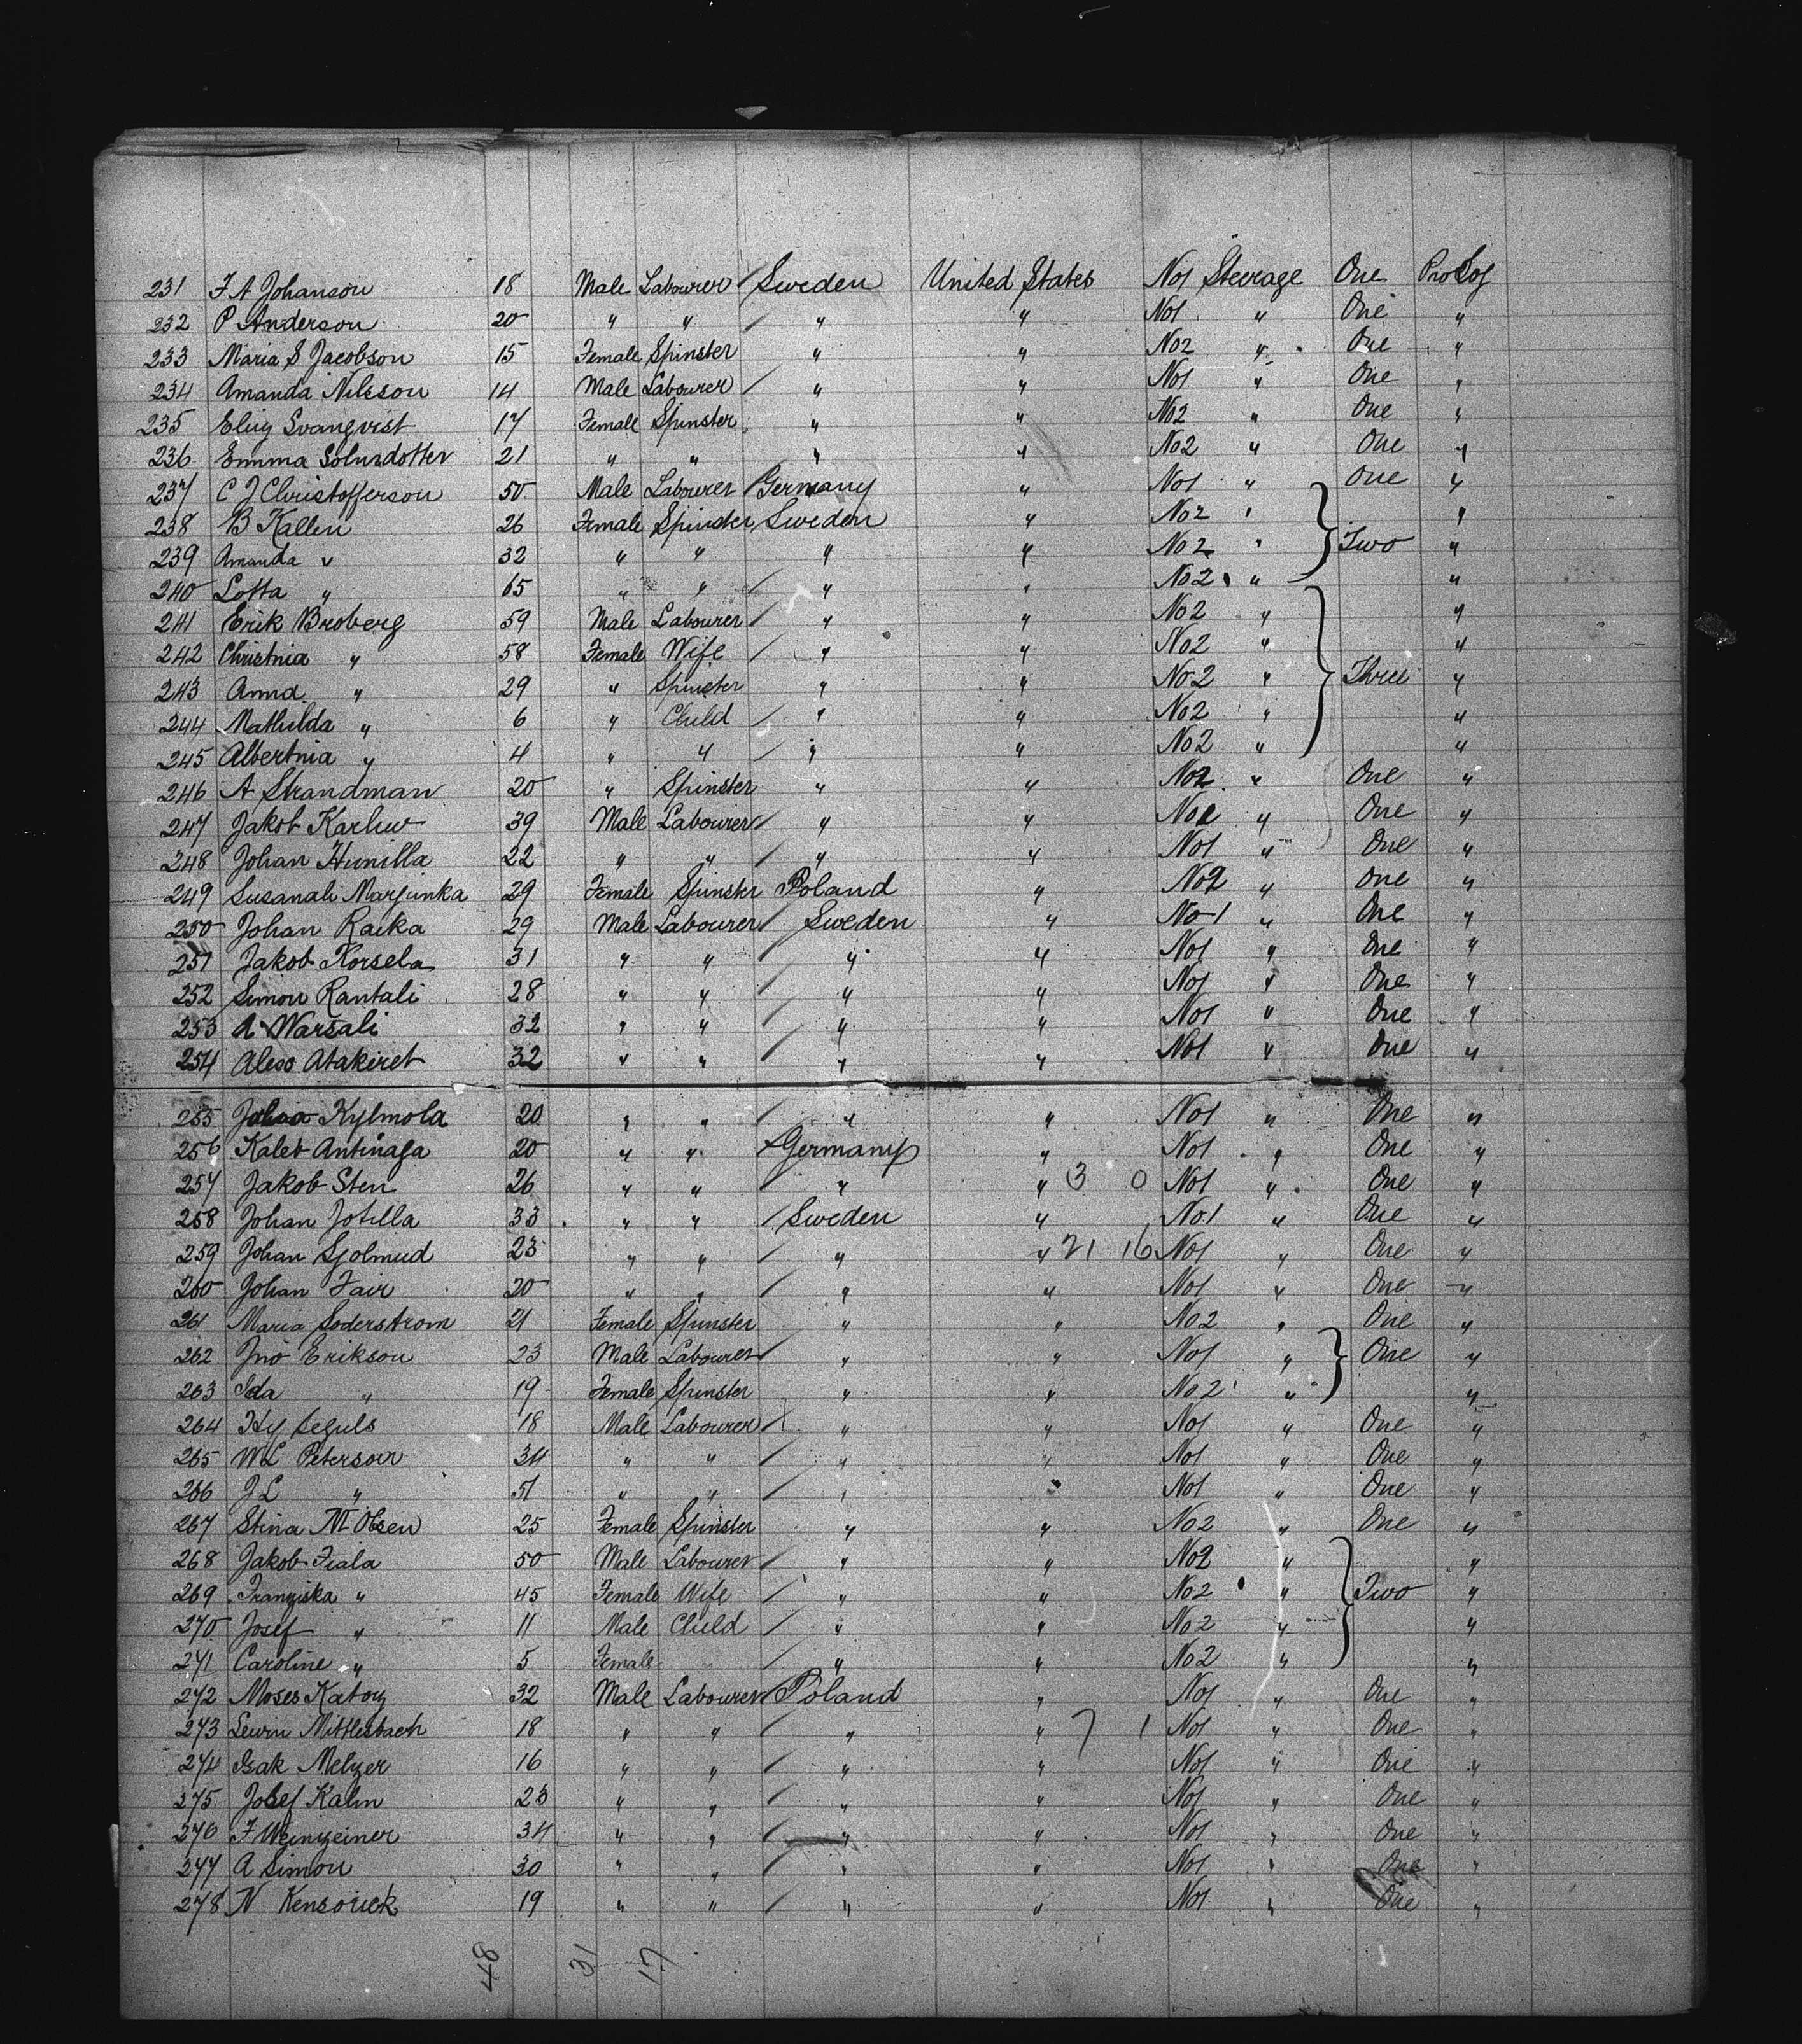 231 F A Johanson 18 Male Labourer Sweden United States No1 Steerage One Pro Soj
232 P Anderson 20 " " " " No1 " One "
233 Maria S Jacobson 15 Female Spinster " " No2 " One "
234 Amanda Nilsson 14 Male Labourer " " No1 " One "
235 Svanqvist 17 Female Spinster " " No2 " One "
236 Emma 21 " " " " No2 " One "
237 C J Christofferson 50 Male Labourer Germany " No1 " One "
238 B Kallen 26 Female Spinster Sweden " No2 " "
239 Amanda " 32 " " " " No2 " Two "
240 Lotta " 65 " " " " No2 " "
241 Erik Broberg 59 Male Labourer " " No2 " "
242 Christnia " 58 Female Wife " " No2 " "
243 Anna " 29 " Spinster " " No2 " Three "
244 Mathilda " 6 " Child " " No2 " "
245 Albertnia " 4 " " " " No2 " "
246 A Strandman 20 " Spinster " " No2 " One "
247 Jakob 39 Male Labourer " " No1 " One "
248 Johan Hunilla 22 " " " " No1 " One "
249 Susanah Marjunka 29 Female Spinster Poland " No2 " One "
250 Johan Raika 29 Male Labourer Sweden " No1 " One "
251 Jakob Korsela 31 " " " " No1 " One "
252 Simon Rantali 28 " " " " No1 " One "
253 A Warsali 32 " " " " No1 " One "
254 Atakeret 32 " " " " No1 " One "
255 Kylmola 20 " " " " No1 " One "
256 Kaleb 20 " " Germany " No1 " One "
257 Jakob Sten 26 " " " " 3 0 No1 " One "
258 Johan Jotilla 33 " " Sweden " No1 " One "
259 Johan Sjolmud 23 " " " " 21 16 No1 " One "
260 Johan Fair 20 " " " " No1 " One "
261 Maria Soderstrom 21 Female Spinster " " No2 " One "
262 Jno Erikson 23 Male Labourer " " No1 " One "
263 Ida " 19 Female Spinster " " No2 " "
264 Hy 18 Male Labourer " " No1 " One "
265 W L Peterson 34 " " " " No1 " One "
266 J L " 51 " " " " No1 " One "
267 Stina M Olsen 25 Female Spinster " " No2 " One "
268 Jakob Fiala 50 Male Labourer " " No2 " "
269 Franziska " 45 Female Wife " " No2 " Two "
270 Josef " 11 Male Child " " No2 " "
271 Caroline " 5 Female " " No2 " "
272 Moses Katoy 32 Male Labourer Poland " No1 " One "
273 Lewin Mittlesbach 18 " " " " 7 1 No1 " One "
274 Isak Melzer 16 " " " " No1 " One "
275 Josef Kahn 23 " " " " No1 " One "
276 F Weinzeiner 34 " " " " No1 " One "
277 A Simon 30 " " " " No1 " One "
278 N Kensorick 19 " " " " No1 " One "
48 31 17